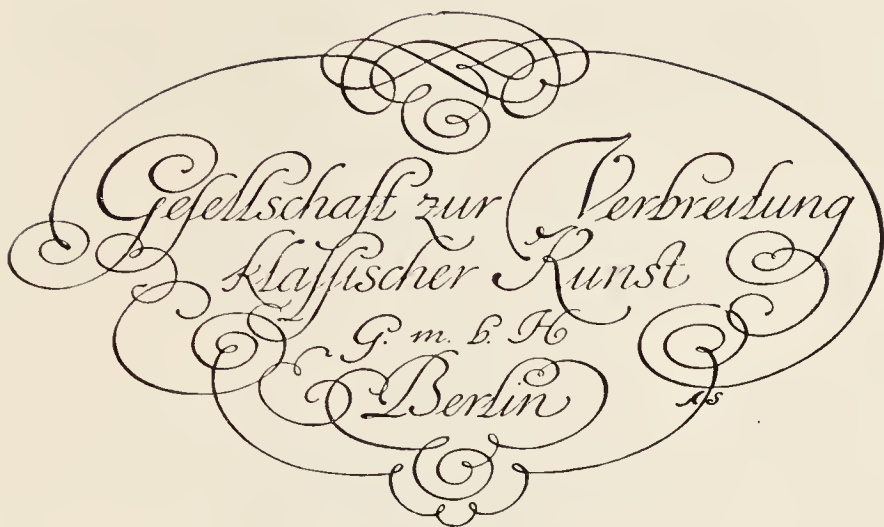 Gesellschaft zur Verbreitung
klassischer Kunst
G. m. b. H
Berlin